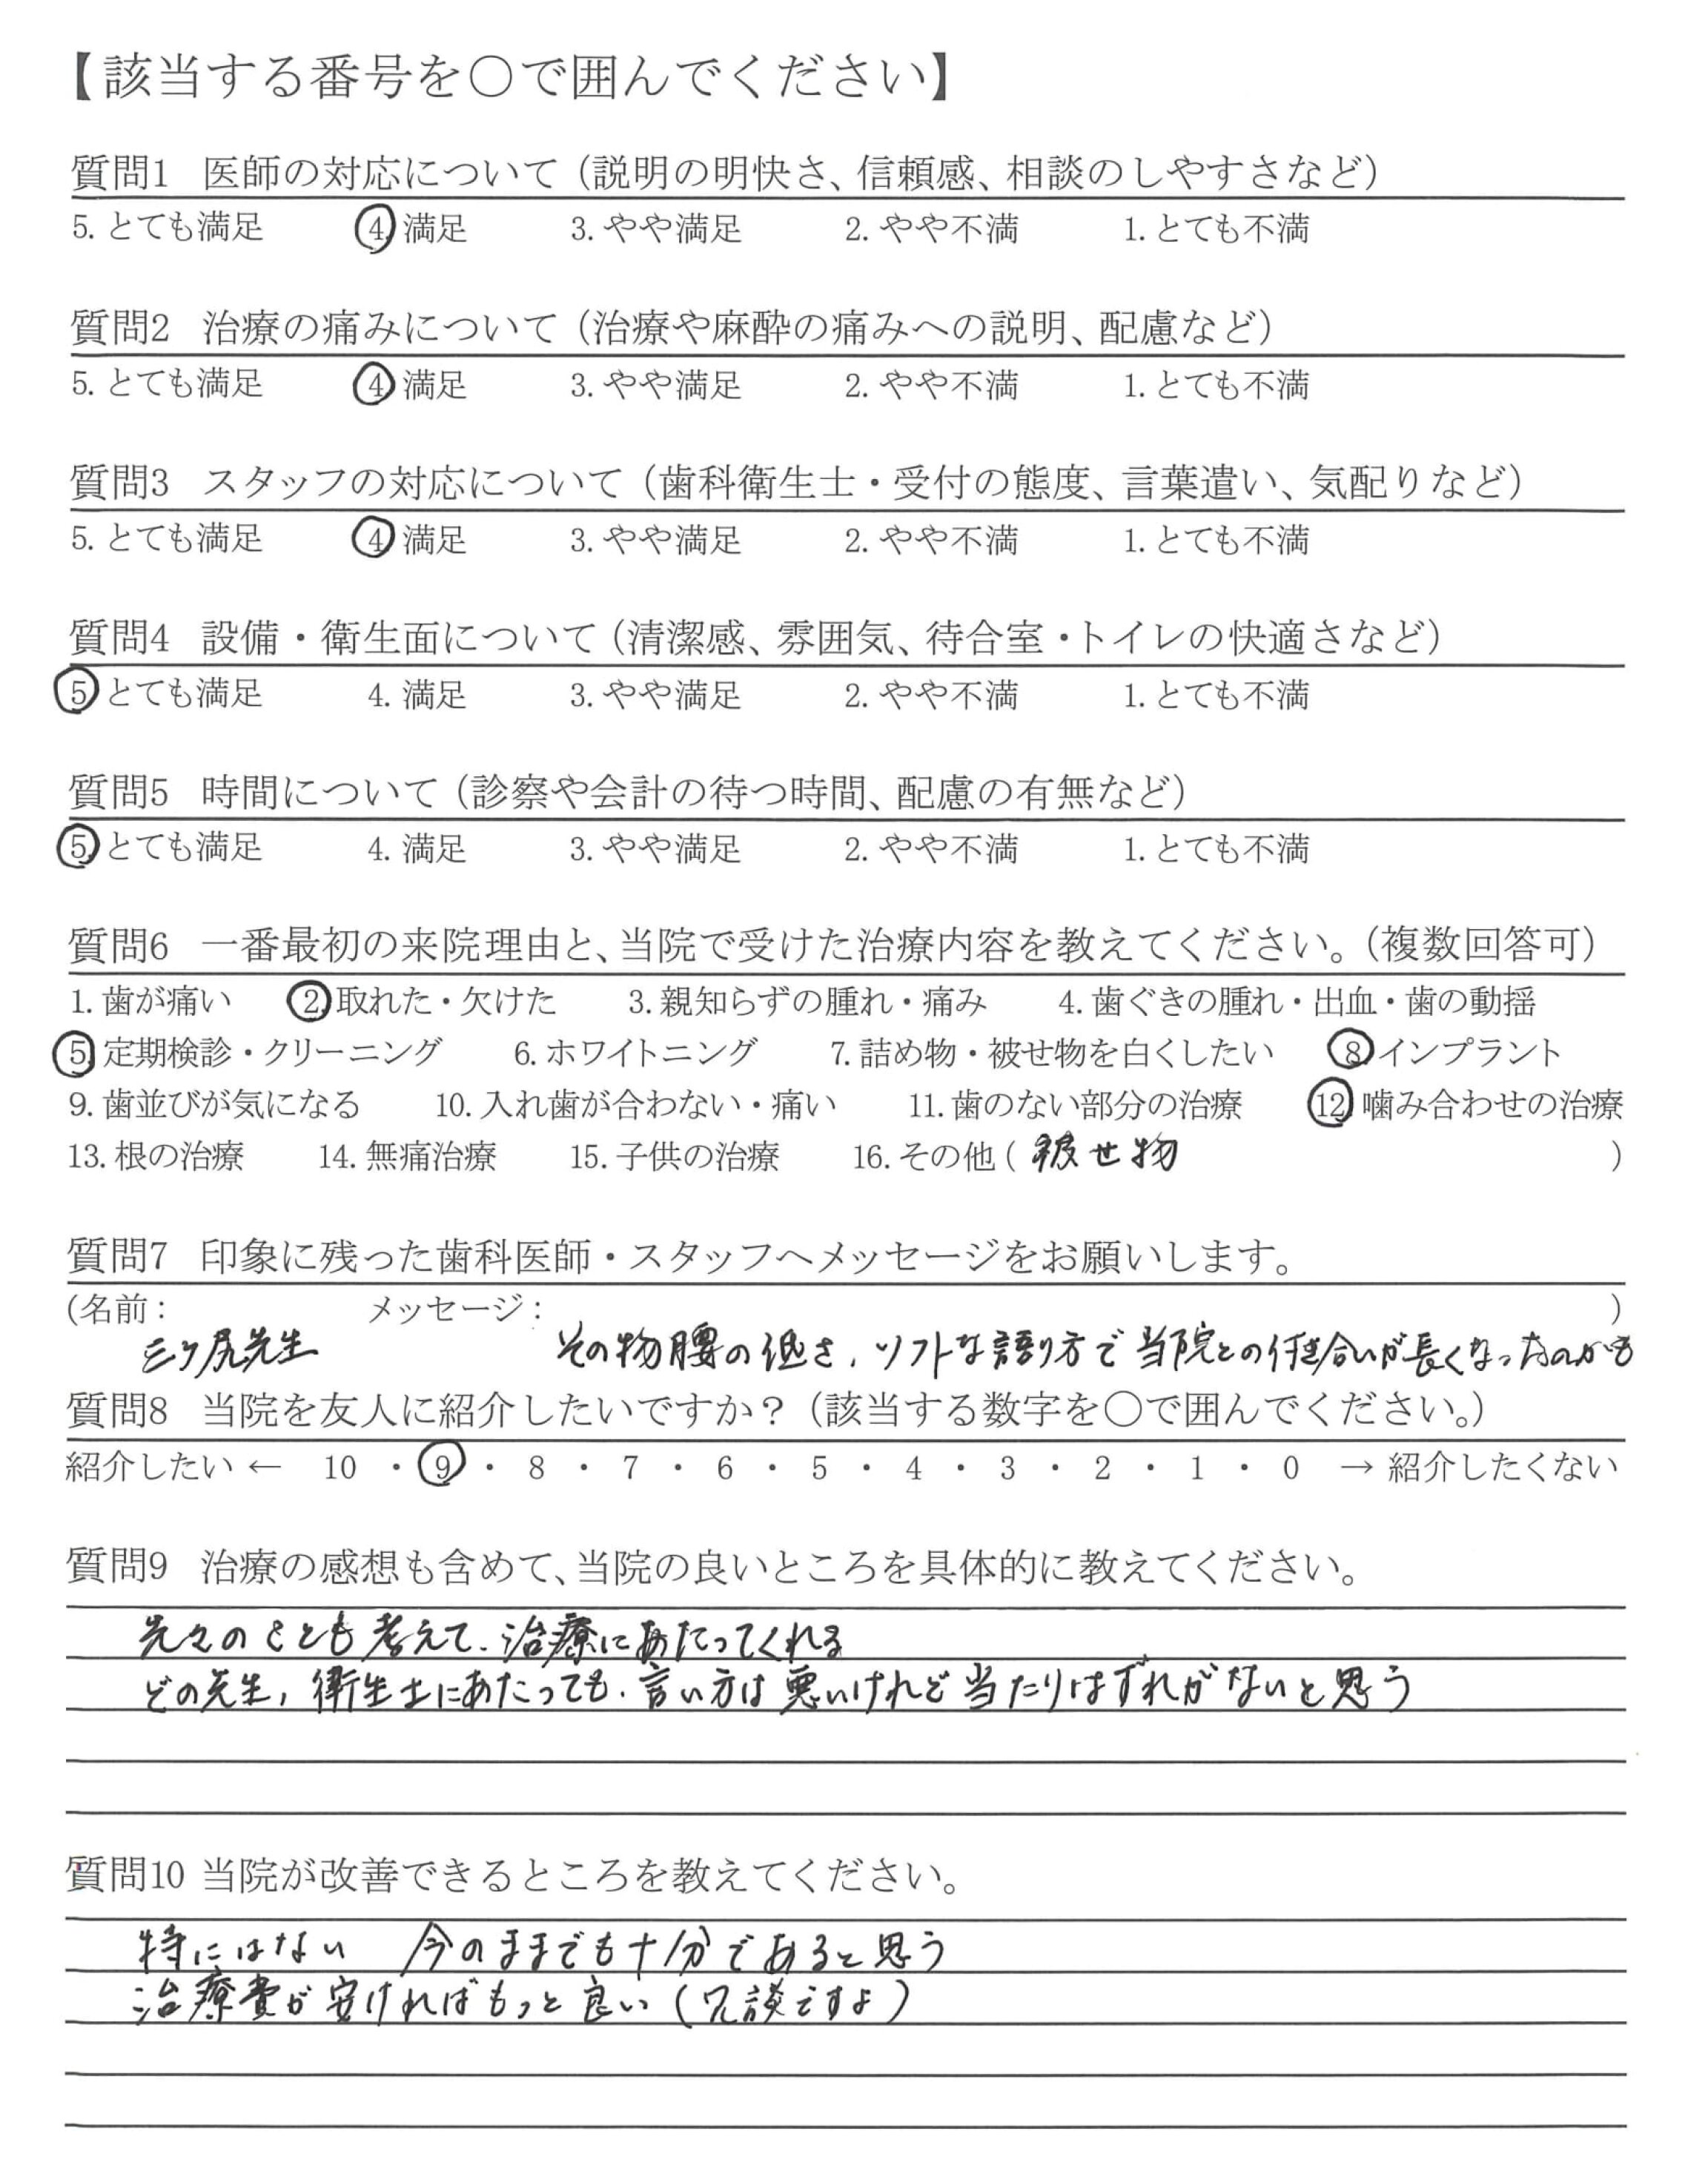 【該当する番号を○で囲んでください】
質問1 医師の対応について（説明の明快さ、信頼感、相談のしやすさなど）
5. とても満足 4. 満足 3. やや満足 2. やや不満 1. とても不満
質問2 治療の痛みについて（治療や麻酔の痛みへの説明、配慮など）
5. とても満足 4. 満足 3. やや満足 2. やや不満 1. とても不満
質問3 スタッフの対応について（歯科衛生士・受付の態度、言葉遣い、気配りなど）
5. とても満足 4. 満足 3. やや満足 2. やや不満 1. とても不満
質問4 設備・衛生面について（清潔感、雰囲気、待合室・トイレの快適さなど）
5. とても満足 4. 満足 3. やや満足 2. やや不満 1. とても不満
質問5 時間について（診察や会計の待つ時間、配慮の有無など）
5. とても満足 4. 満足 3. やや満足 2. やや不満 1. とても不満
質問6 一番最初の来院理由と、当院で受けた治療内容を教えてください。（複数回答可）
1. 歯が痛い 2. 取れた・欠けた 3. 親知らずの腫れ・痛み 4. 歯ぐきの腫れ・出血・歯の動揺
5. 定期検診・クリーニング 6. ホワイトニング 7. 詰め物・被せ物を白くしたい 8. インプラント
9. 歯並びが気になる 10. 入れ歯が合わない・痛い 11. 歯のない部分の治療 12. 噛み合わせの治療
13. 根の治療 14. 無痛治療 15. 子供の治療 16. その他（ 被せ物 ）
質問7 印象に残った歯科医師・スタッフへメッセージをお願いします。
（名前： メッセージ： ）
三ケ尻先生 その物腰の低さ、ソフトな語り方で当院との付き合いが長くなったのかも
質問8 当院を友人に紹介したいですか？（該当する数字を○で囲んでください。）
紹介したい ← 10 ・ 9 ・ 8 ・ 7 ・ 6 ・ 5 ・ 4 ・ 3 ・ 2 ・ 1 ・ 0 → 紹介したくない
質問9 治療の感想も含めて、当院の良いところを具体的に教えてください。
先々のことも考えて、治療にあたってくれる
どの先生，衛生士にあたっても、言い方は悪いけれど当たりはずれがないと思う
質問10 当院が改善できるところを教えてください。
特にはない 今のままでも十分であると思う
治療費が安ければもっと良い（冗談ですよ）